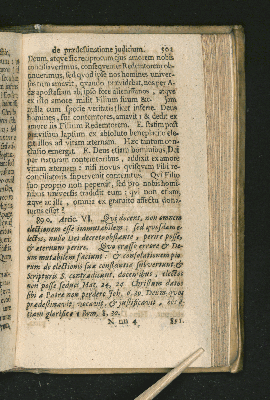 de prædestinatione judicium. 503
Deum, atque sic reciprocum quasi amorem nobis
conciliaverimus, consequenter Redemtorem ob-
tinuerimus, sed quod ipse nos homines univer-
sos tum amavit, quando prævidebat, nos per A-
dæ apostasiam ab ipso fore alienissimos, atque
ex isto amore misit Filium suum &c. Jam
nulla cum specie veritatis
homines, sui contemtores, amavit & dedit ex
amore iis Filium Redemtorem. E. statim post
prævisum lapsum ex absoluto beneplacito ele-
git illos ad vitam æternam. Hæc tantum con-
clusio emergit. E. Deus etiam hominibus,
per naturam contemtoribus, addixit ex amore
vitam æternam: nisi novus quispiam Filii re-
conciliatoris supervenit contemtus. Qui Filio
suo proprio non pepercit, sed pro nobis homi-
nibus universis tradidit eum: qui non etiam,
quæ illius, omnia ex gratuito affectu dona-
turus esset?
890. Artic. VI. Qui docent, non omnem
electionem esse immutabilem: sed quosdam e-
lectos, nullo Dei decreto obstante, perire posse,
& æternum perire. Quo crasso errore & De-
um mutabilem faciunt: & consolationem pio-
rum de electionis suæ constantia subvertunt &
Scripturis S. contradicunt, docentibus, electos
non posse seduci Mat. 24, 24. Christum datos
sibi a Patre non perdere Joh. 6, 39. Deum quos
prædestinavit, vocavit, & justificavit, eos e-
tiam glorificare Rom. 8, 30.
4 891.